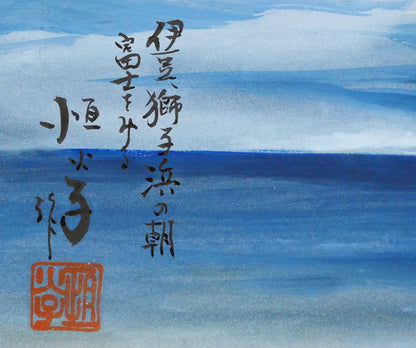 伊豆、獅子浜の朝
富士をみる
恒火子作